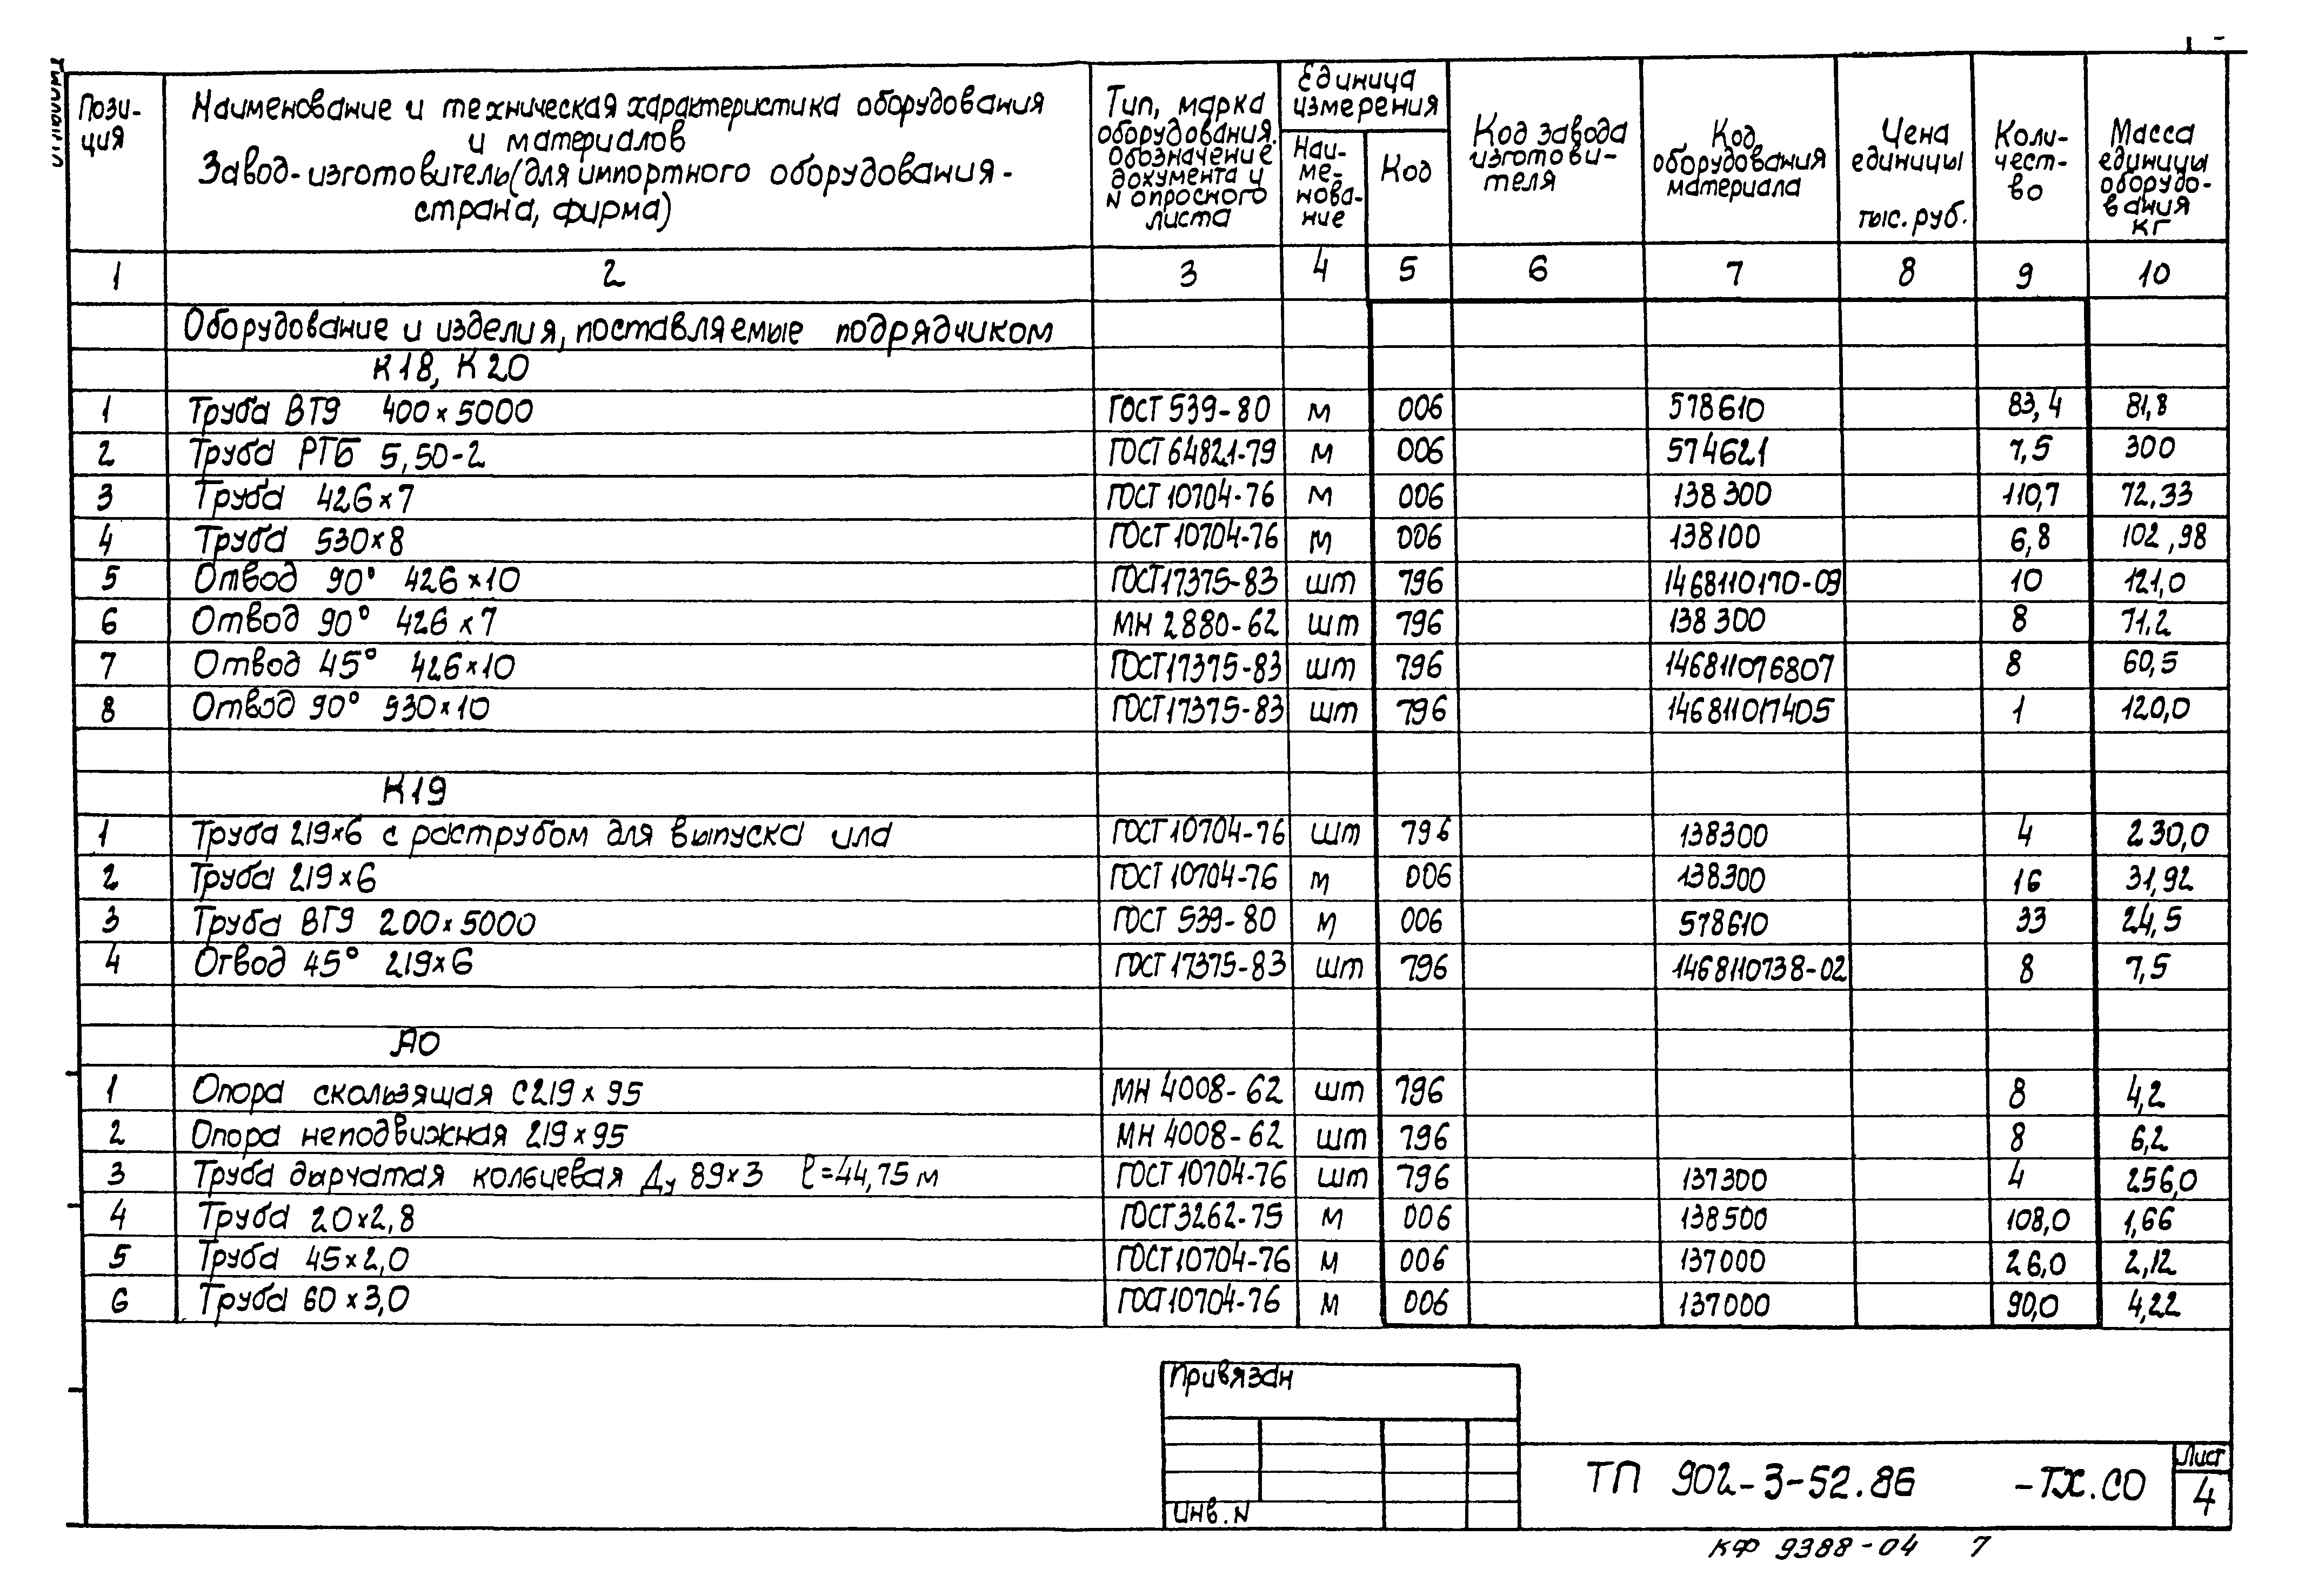 Пози-
ция
Наименование и техническая характеристика оборудования
и материалов
Завод-изготовитель(для импортного оборудования-
страна, фирма)
Тип, марка
оборудования.
Обозначение
документа и
N опросного
листа
Единица
измерения
Наи-
ме-
нова-
ние
Код
Код завода
изготови-
теля
Код
оборудования
материала
Цена
единицы
тыс. руб.
Коли-
чест-
во
Масса
единицы
оборудо-
вания
кг
1 2 3 4 5 6 7 8 9 10
Оборудование и изделия, поставляемые подрядчиком
К18, К20
1 Труба ВТ9 400×5000 ГОСТ 539-80 м 006 578610 83,4 81,8
2 Труба РТБ 5,50-2 ГОСТ 64821-79 м 006 574621 7,5 300
3 Труба 426×7 ГОСТ 10704-76 м 006 138300 110,7 72,33
4 Труба 530×8 ГОСТ 10704-76 м 006 138100 6,8 102,98
5 Отвод 90° 426×10 ГОСТ17375-83 шт 796 1468110170-09 10 121,0
6 Отвод 90° 426×7 МН 2880-62 шт 796 138300 8 71.2
7 Отвод 45° 426×10 ГОСТ17375-83 шт 796 146811076807 8 60,5
8 Отвод 90° 530×10 ГОСТ17375-83 шт 796 146811017405 1 120,0
К19
1 Труба 219×6 с раструбом для выпуска ила ГОСТ 10704-76 шт 796 138300 4 230,0
2 Труба 219×6 ГОСТ 10704-76 м 006 138300 16 31,92
3 Труба ВТ9 200×5000 ГОСТ 539-80 м 006 578610 33 24,5
4 Отвод 45° 219×6 ГОСТ 17375-83 шт 796 1468110738-02 8 7,5
АО
1 Опора скользящая С219×95 МН 4008-62 шт 796 8 4,2
2 Опора неподвижная 219×95 МН 4008-62 шт 796 8 6,2
3 Труба дырчатая кольцевая Ду 89×3 ℓ=44,75м ГОСТ 10704-76 шт 796 137300 4 256,0
4 Труба 20×2,8 ГОСТ3262-75 м 006 138500 108,0 1,66
5 Труба 45×2,0 ГОСТ10704-76 м 006 137000 26,0 2,12
6 Труба 60×3,0 ГОСТ10704-76 м 006 137000 90,0 4,22
Привязан
Инв. N
ТП 902-3-52.86 -ТХ.СО
Лист
4
КФ 9388-04 7